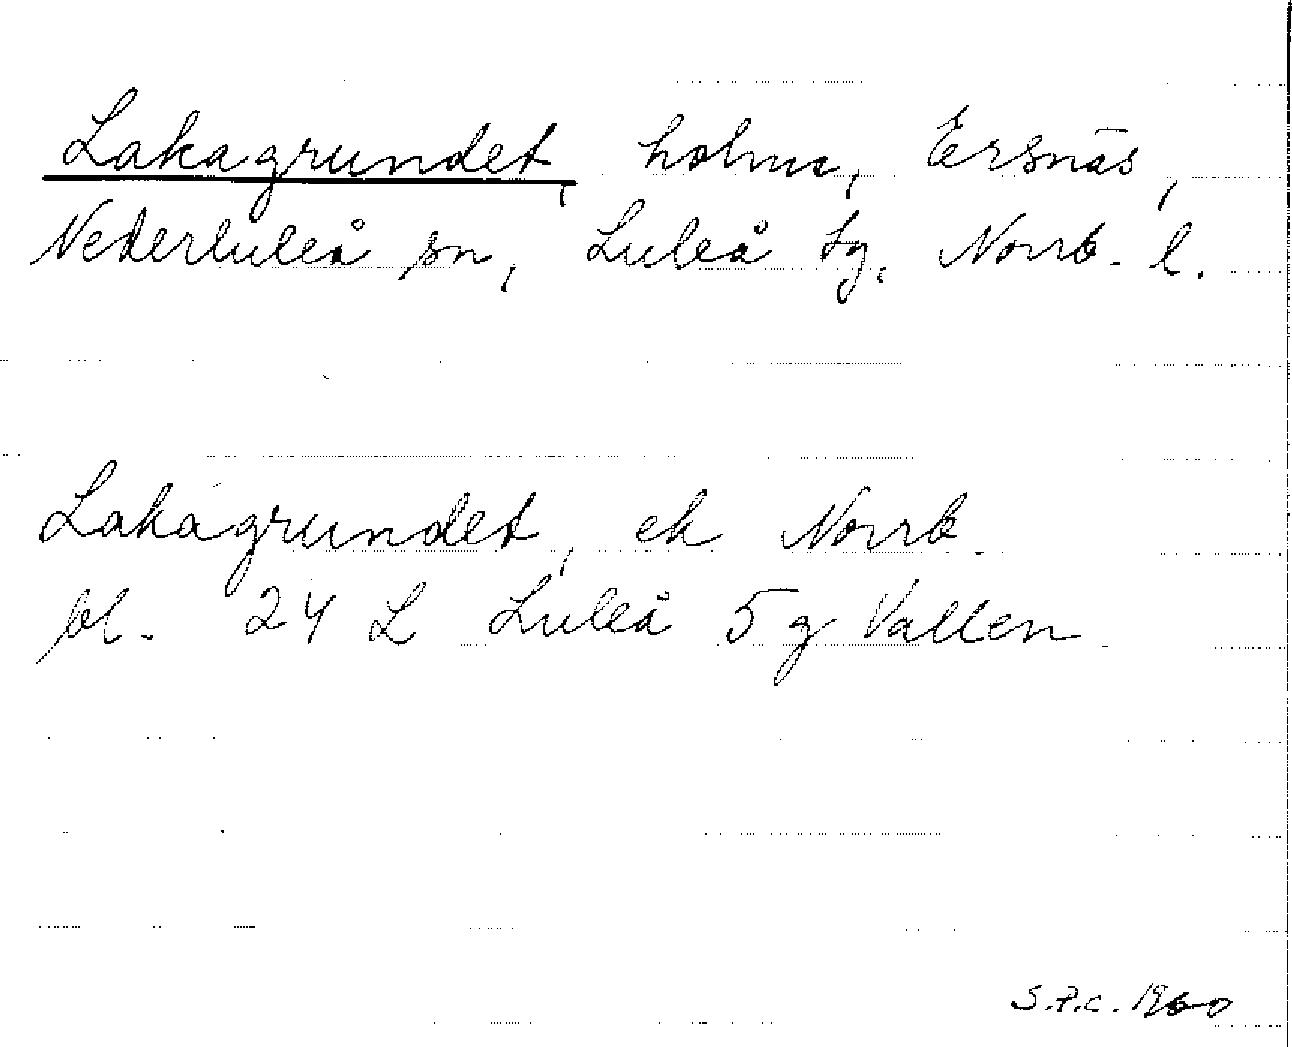 Lakagrundet, holme, Ersnäs,
Nederluleå sn, Luleå tg. Norrb. l.
Lakagrundet, ek Norrb.
bl. 24 L Luleå 5 g Vallen
S.P.C. 1960